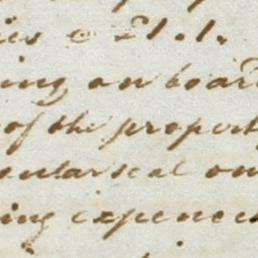 ies @ £1.1.
ing on board
of the property
nular seal on
ing expences